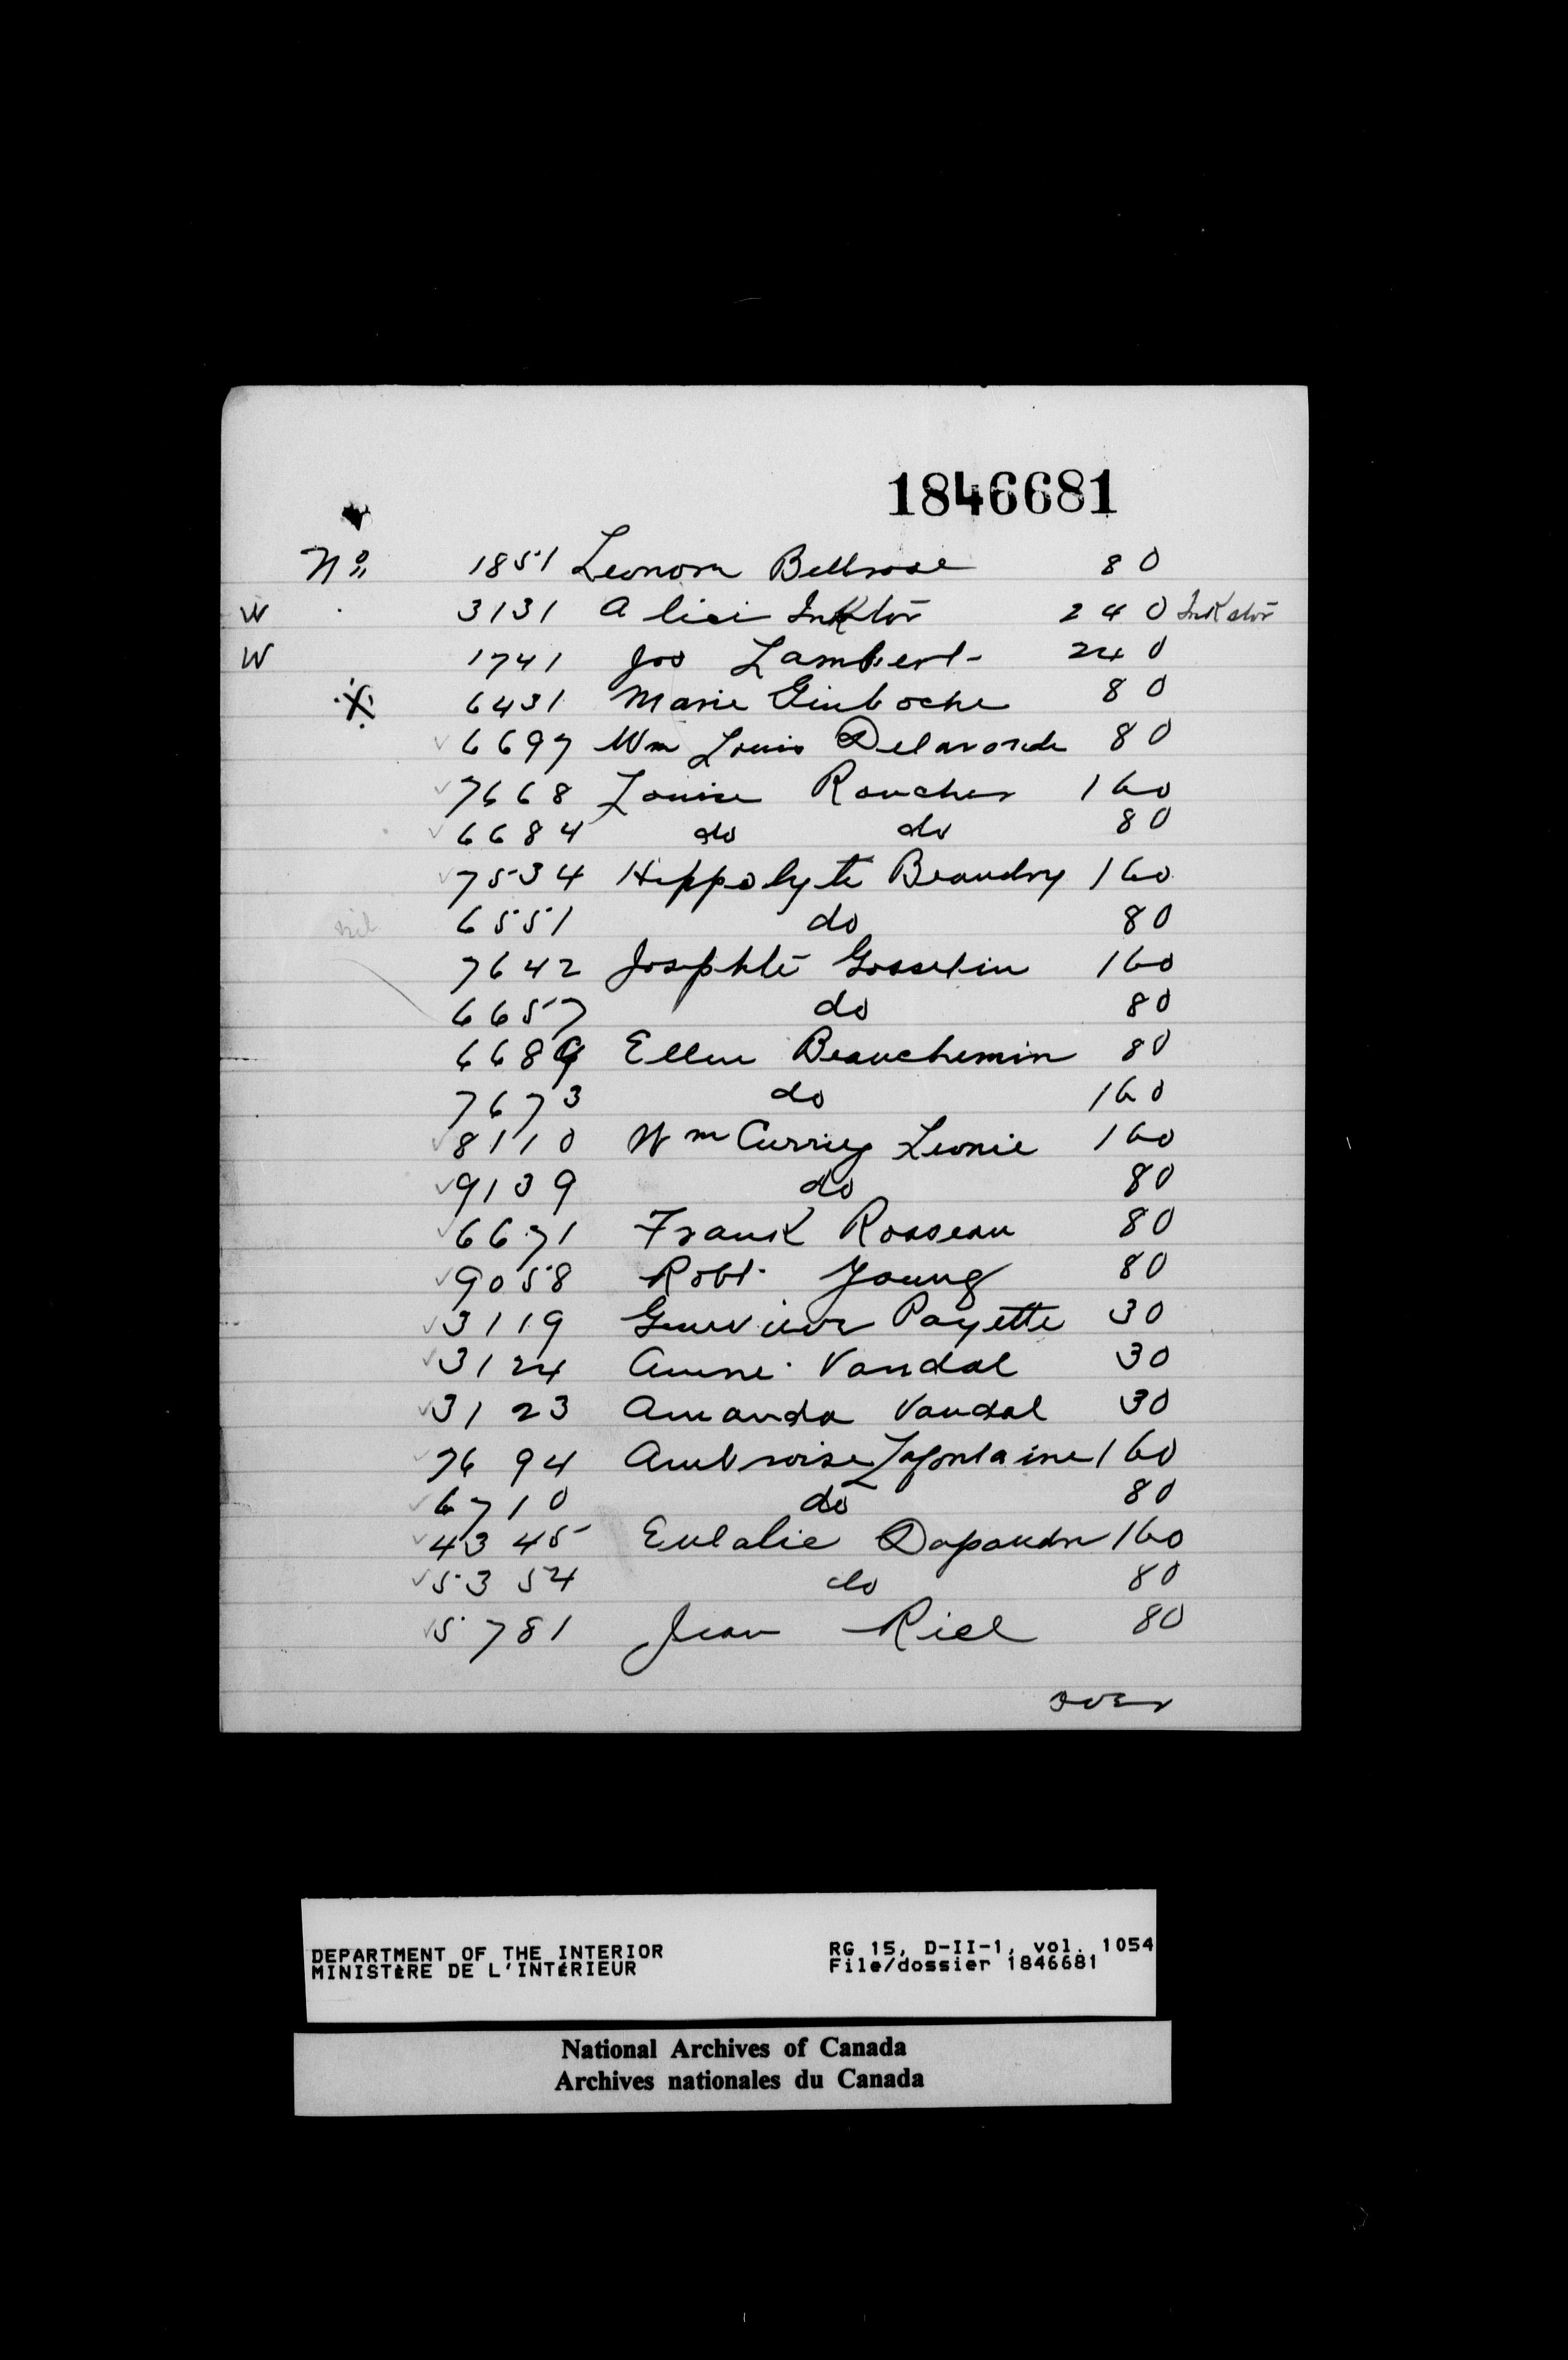 1846681
No 1851 Leonora Bellrose 80
W 3131 Alice Inkster 240 Inkster
W 1741 Jos Lambert 240
6431 Marie 80
6697 Wm Louis Delaronde 80
7668 Louise Roucher 160
6684 do do 80
7534 Hippolyte Beaudry 160
nil 6551 do 80
7642 Josephte Gosselin 160
6657 do 80
6689 Ellen Beauchemin 80
7673 do 160
8110 Wm Currie Leonie 160
9139 do 80
6671 Frank Rosseau 80
9058 Robt. Young 80
3119 Genevieve Payette 30
3124 Vandal 30
3123 Amanda Vandal 30
7694 Ambroise Lafontaine 160
6710 do 80
4345 Eulalie 160
5354 do 80
5781 Jean Riel 80
over
DEPARTMENT OF THE INTERIOR RG 15, D-II-1, vol. 1054
MINISTÈRE DE L'INTÉRIEUR File/dossier 1846681
National Archives of Canada
Archives nationales du Canada